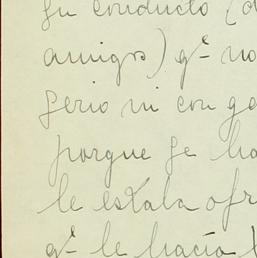 su conducto (d
amigos) qe no
serio ni con ga
porque se ha
le estaba ofr
qe le hacía